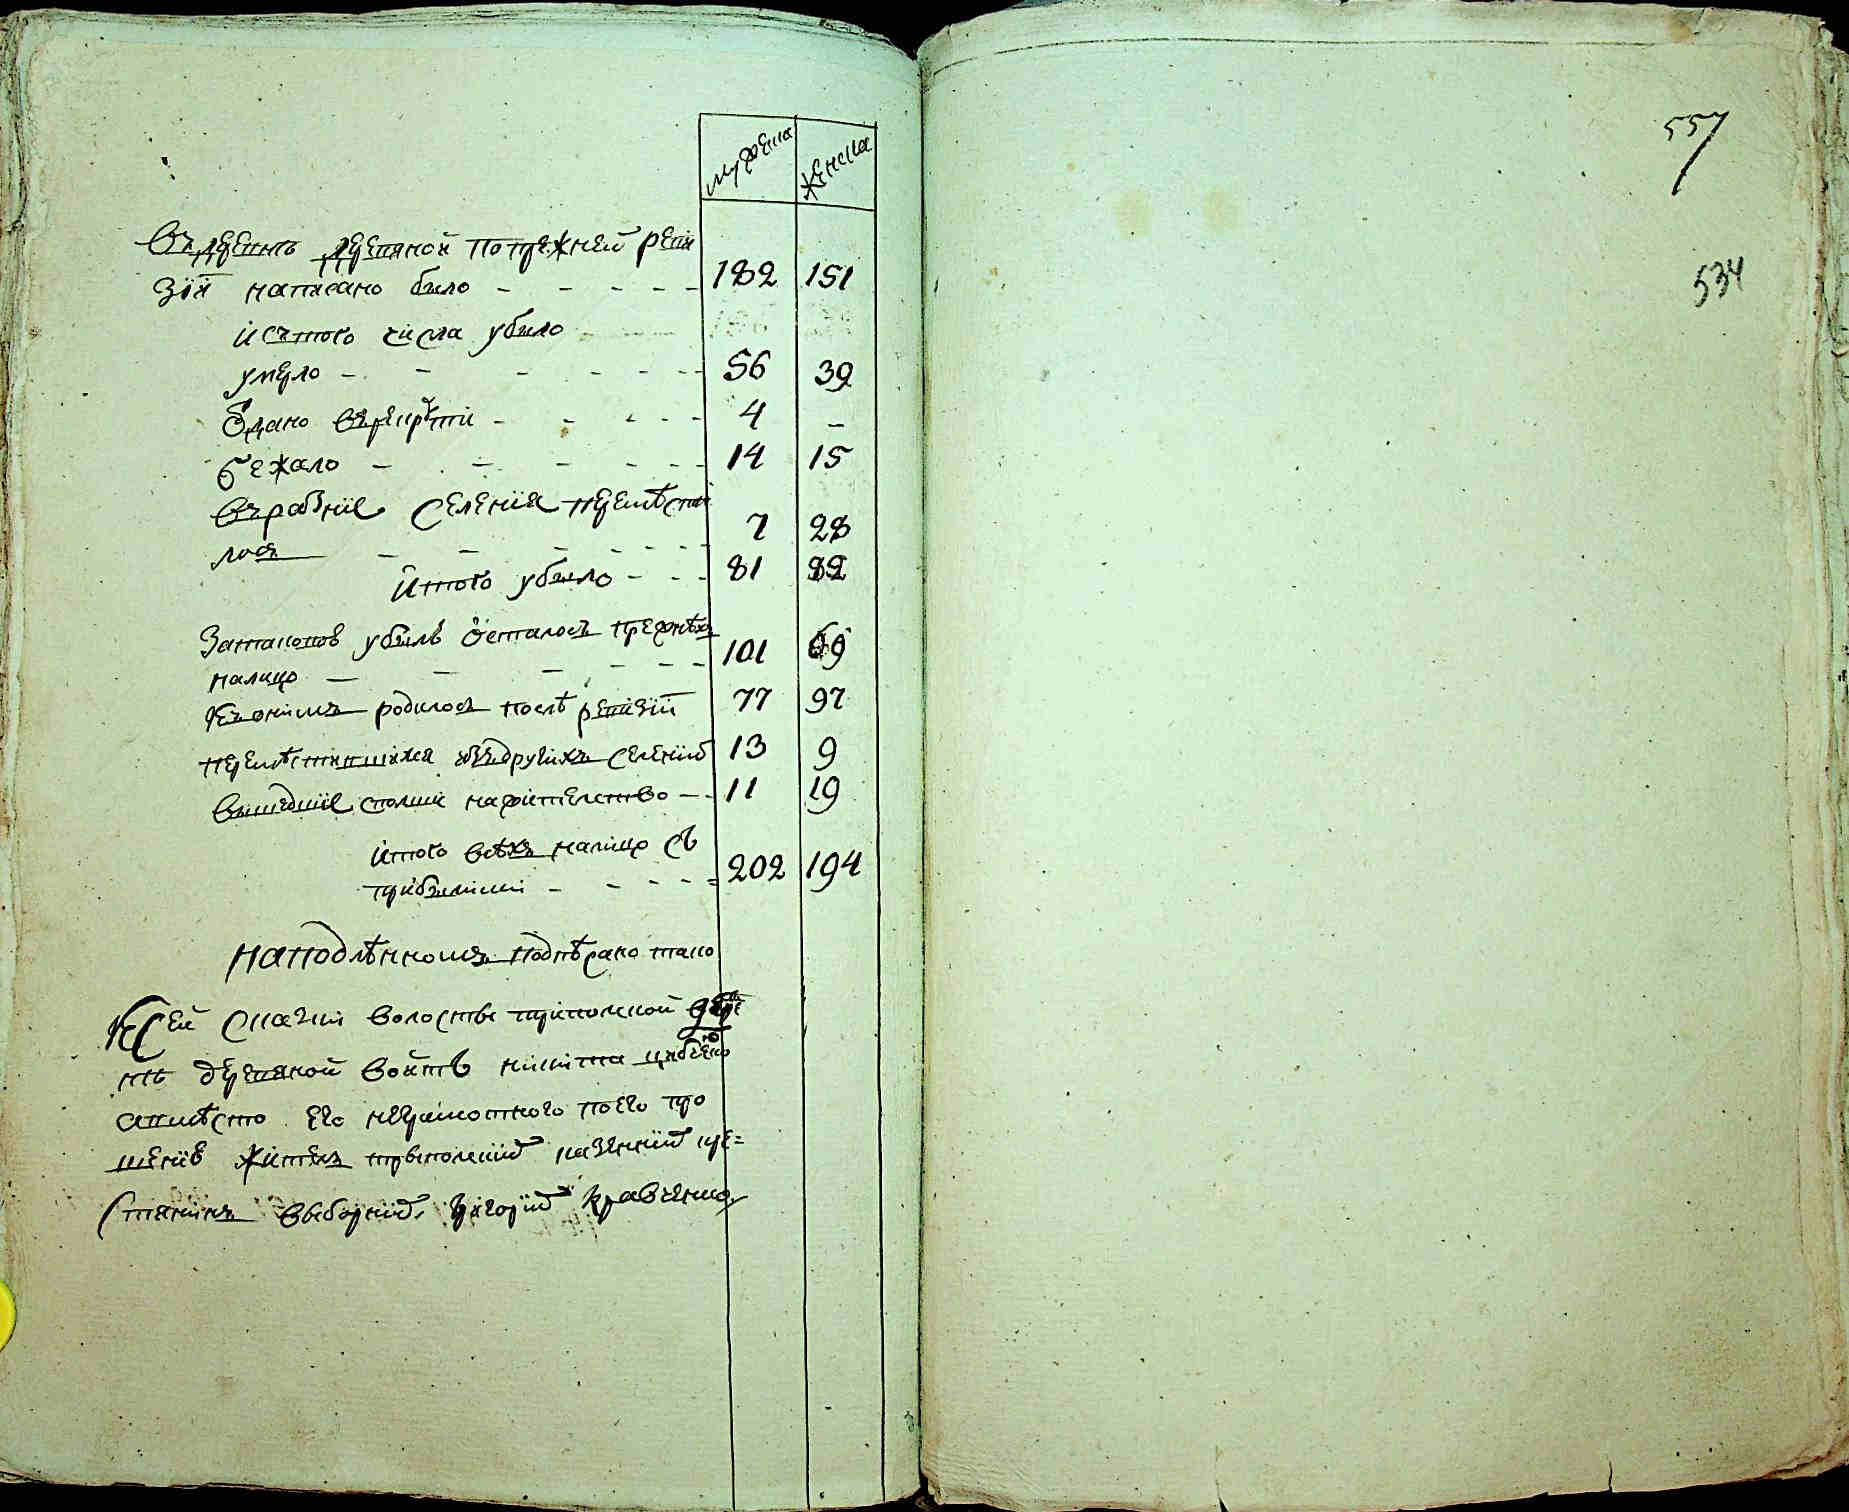 мужеска
женска
въ деревнѣ деревяной попрежней реви
зїи написано было - - - - - 182 151
исътого числа убыло
умерло - - - - - - 56 39
ѿдано въ рекруты - - - - 4 -
бежало - - - - - - 14 15
въразние селения перемѣсти
лося - - - - - - - 7 28
итого убыло - - - 81 82
Затаковою убылью ѿсталось прежнѣхъ
налицо - - - - - - 101 69
Къонимъ родилось послѣ ревизїи 77 97
перемѣстившихся изъдругихъ селений 13 9
вышедшие споли нажителство - - 11 19
итого всѣхъ налицо съ
прибылими - - - - - 202 194
наподлѣнномъ подпѣсано тако
Ксей скаски волосты триполской дерев
нѣ деревяной войтъ никита
авмѣсто его неграмотного поего про
шению житель трыполский казенний кре=
стянинъ виборний григорий кравченко
557
534